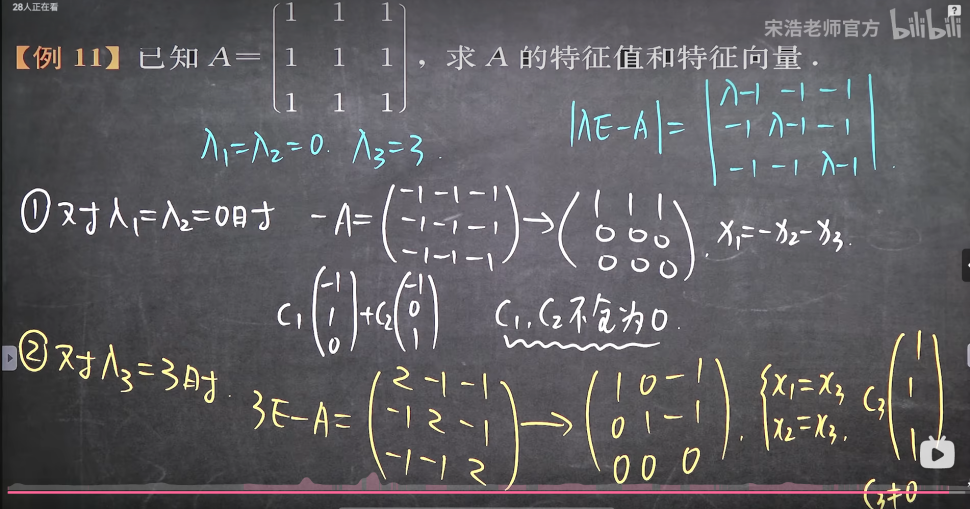 28人正在看
宋浩老师官方 bilibili
【例 11】已知 A= (1 1 1; 1 1 1; 1 1 1) ，求 A 的特征值和特征向量．
|λE-A|= |λ-1 -1 -1; -1 λ-1 -1; -1 -1 λ-1| .
λ₁=λ₂=0. λ₃=3.
① 对λ₁=λ₂=0时 -A= (-1 -1 -1; -1 -1 -1; -1 -1 -1) → (1 1 1; 0 0 0; 0 0 0) . x₁=-x₂-x₃.
C₁ (-1; 1; 0) +C₂ (-1; 0; 1) C₁,C₂不全为0.
② 对λ₃=3时. 3E-A= (2 -1 -1; -1 2 -1; -1 -1 2) → (1 0 -1; 0 1 -1; 0 0 0) . {x₁=x₃ x₂=x₃. C₃ (1; 1; 1)
C₃≠0